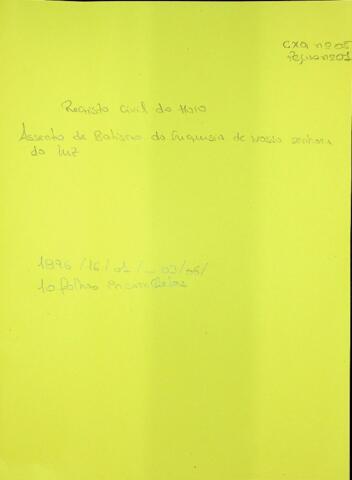 CXA nº 05
Peça nº 01
Registo Civil do Maio
Assento de Batismo da freguesia de Nossa senhora
da Luz
1896/16/01/_03/06/
10 folhas encontradas